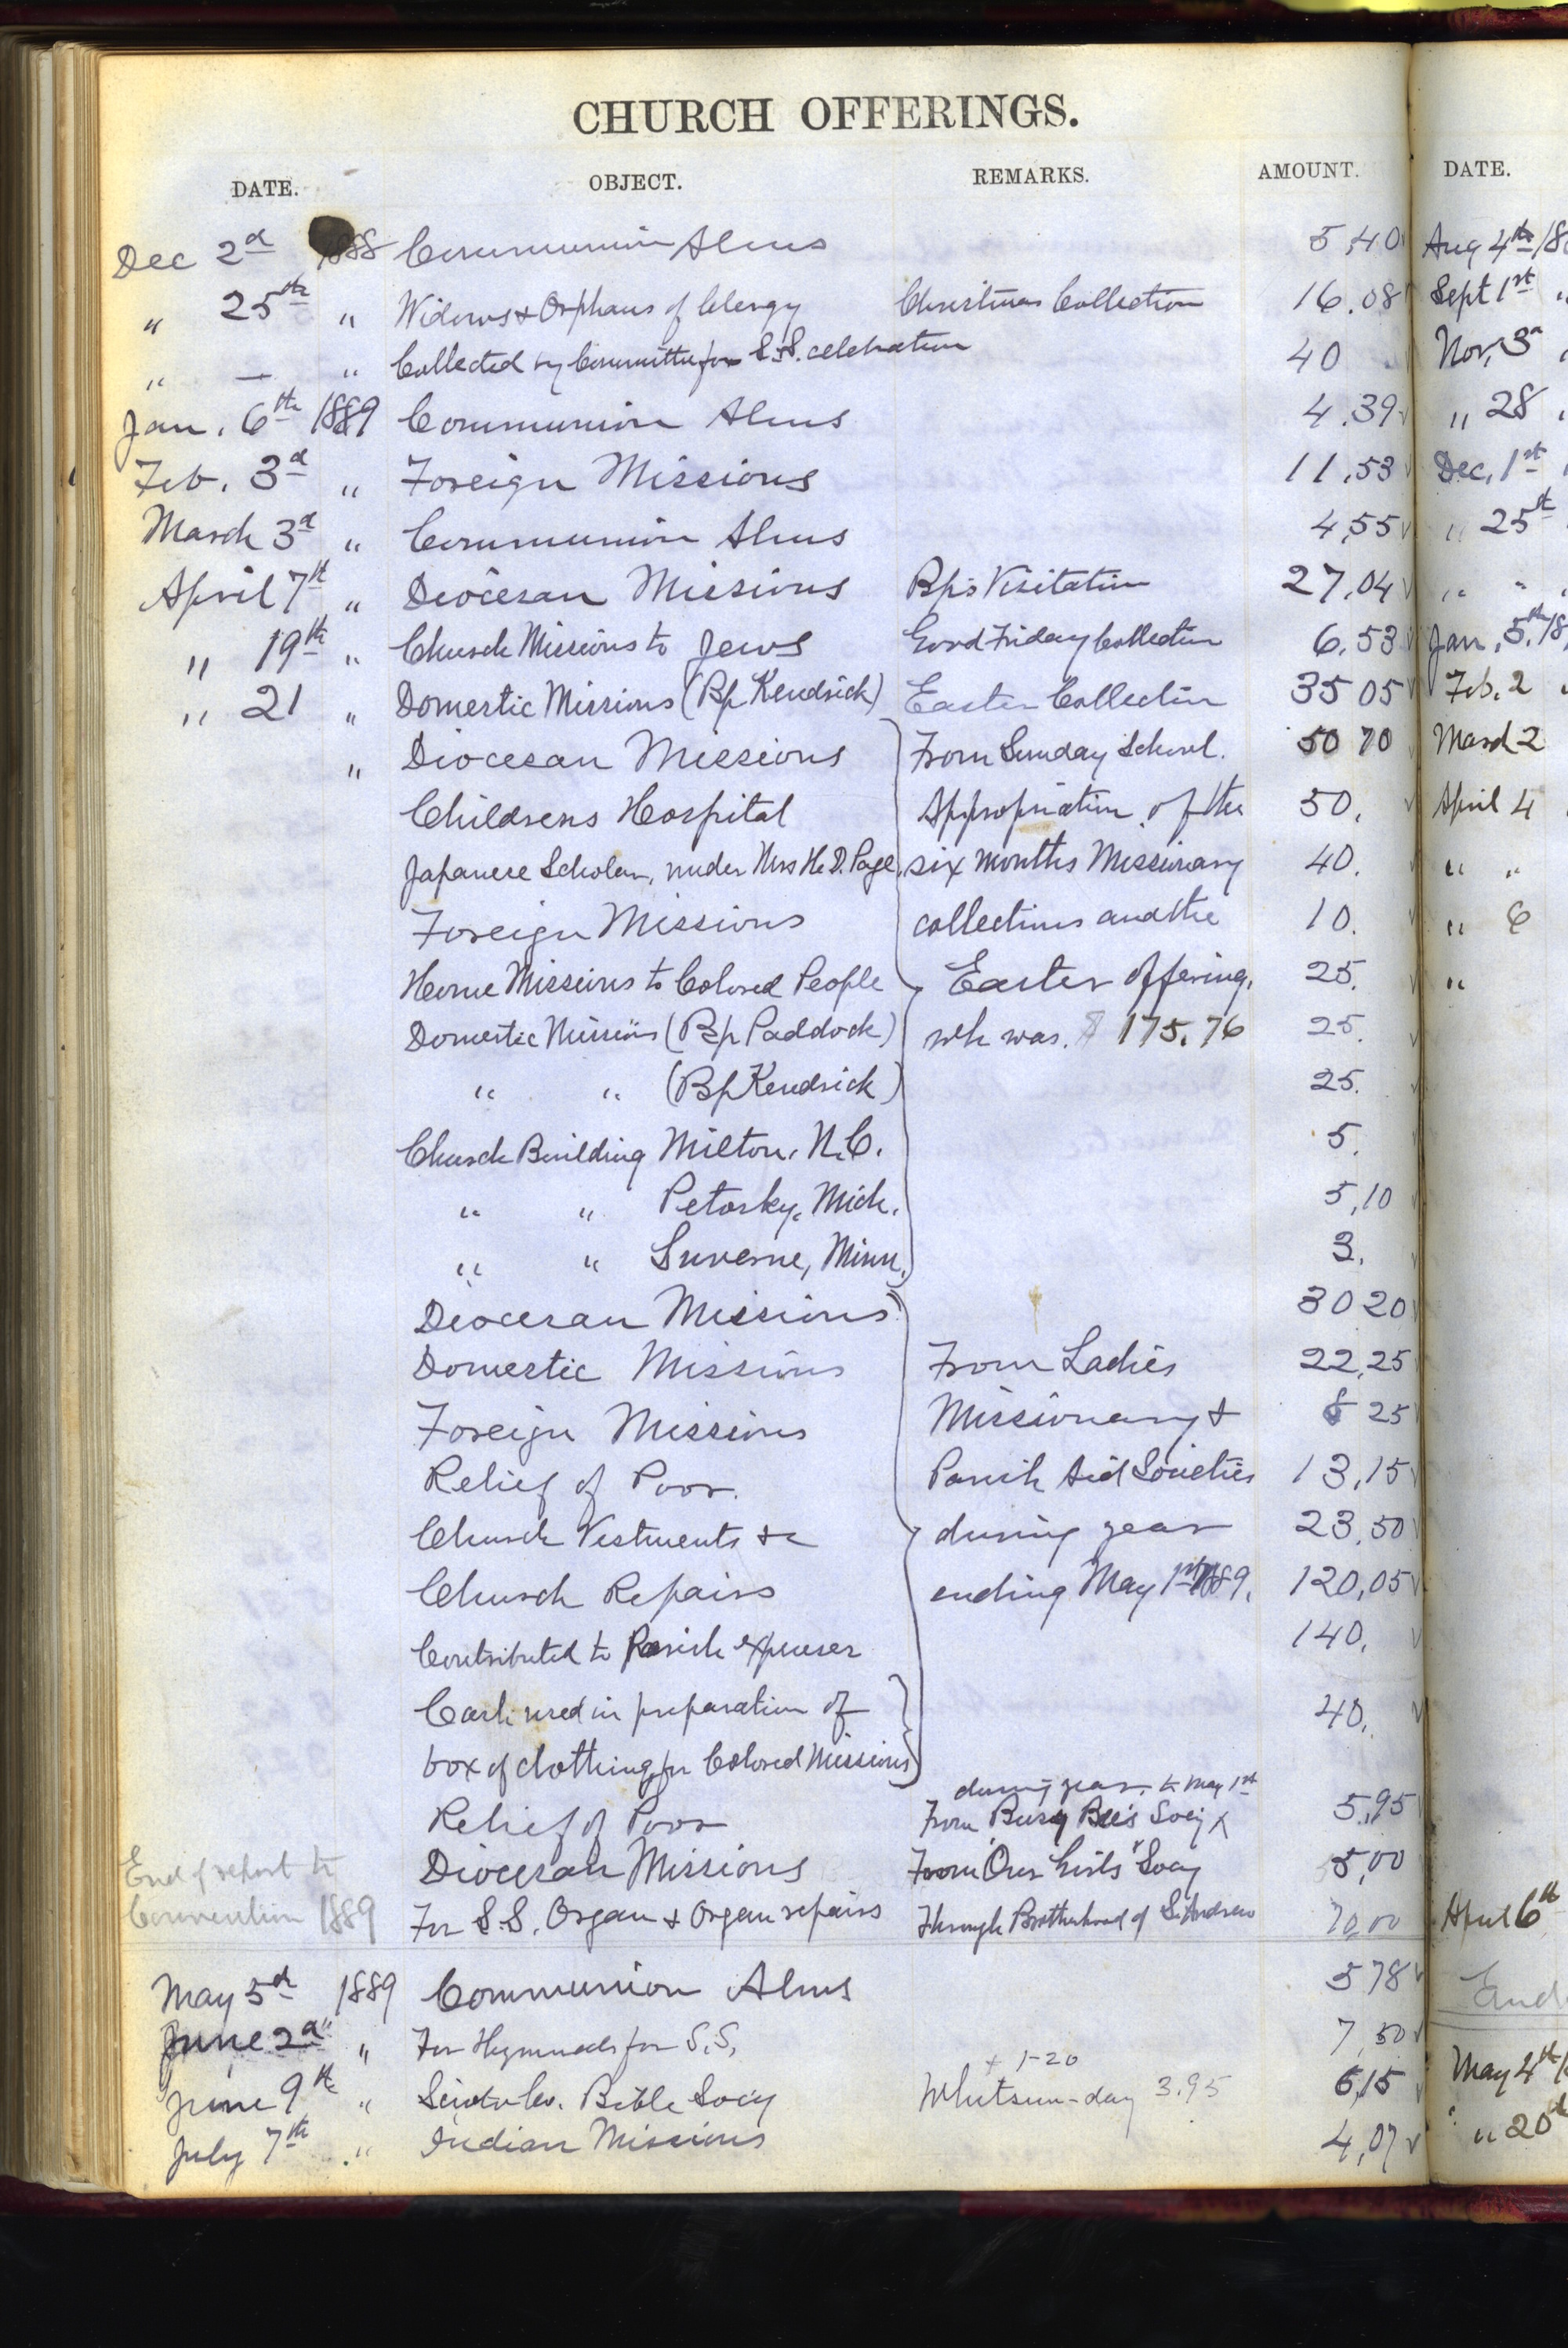 CHURCH OFFERINGS.
DATE. OBJECT. REMARKS. AMOUNT. DATE.
Dec 2d 1888 Communion Alms 5,40
" 25th " Widows & Orphans of Clergy Christmas Collection 16.08
" — " Collected by Committee for S.S. celebration 40
Jan. 6th 1889 Communion Alms 4.39
Feb. 3d " Foreign Missions 11.53
March 3d " Communion Alms 4,55
April 7th " Diocesan Missions Bp's Visitation 27.04
" 19th " Church Missions to Jews Good Friday Collection 6.53
" 21 " Domestic Missions (Bp Kendrick) Easter Collection 35 05
" Diocesan Missions From Sunday School. 50 70
Childrens Hospital Appropriation of the 50.
Japanese Scholar, under Mrs H. D. Page, six months Missionary 40.
Foreign Missions collections and the 10.
Home Missions to Colored People Easter offering, 25.
Domestic Missions (Bp Paddock) wh was. $ 175.76 25.
" " (Bp Kendrick) 25.
Church Building Milton, N.C. 5.
" " Petosky, Mich. 5,10
" " Luverne, Minn. 3.
Diocesan Missions 30 20
Domestic Missions From Ladies 22,25
Foreign Missions Missionary & 8 25
Relief of Poor. Parish Aid Societies 13,15
Church Vestments &c during year 23,50
Church Repairs ending May 1st 1889. 120,05
Contributed to Parish expenses 140.
Cash used in preparation of 40.
box of clothing for Colored Missions
during year to May 1st
Relief of Poor From Busy Bee's Socy 5,95
End of report to Diocesan Missions From "Our Girls" Socy 5,00
Convention 1889 For S.S. Organ & Organ repairs Through Brotherhood of St. Andrew 70,00
May 5th 1889 Communion Alms 5 78
June 2d " For Hymnals for S.S. 7,50
+ 1-20
June 9th " Scioto Co. Bible Socy Whitsun-day 3.95 5,15
July 7th " Indian Missions 4,07
Aug 4th /8
Sept 1st "
Nov, 3d
" 28
Dec, 1st
" 25th
" "
Jan, 5th, /8
Feb. 2
March 2
April 4
" "
" 6
"
April 6th
End
May 4th
" 20th